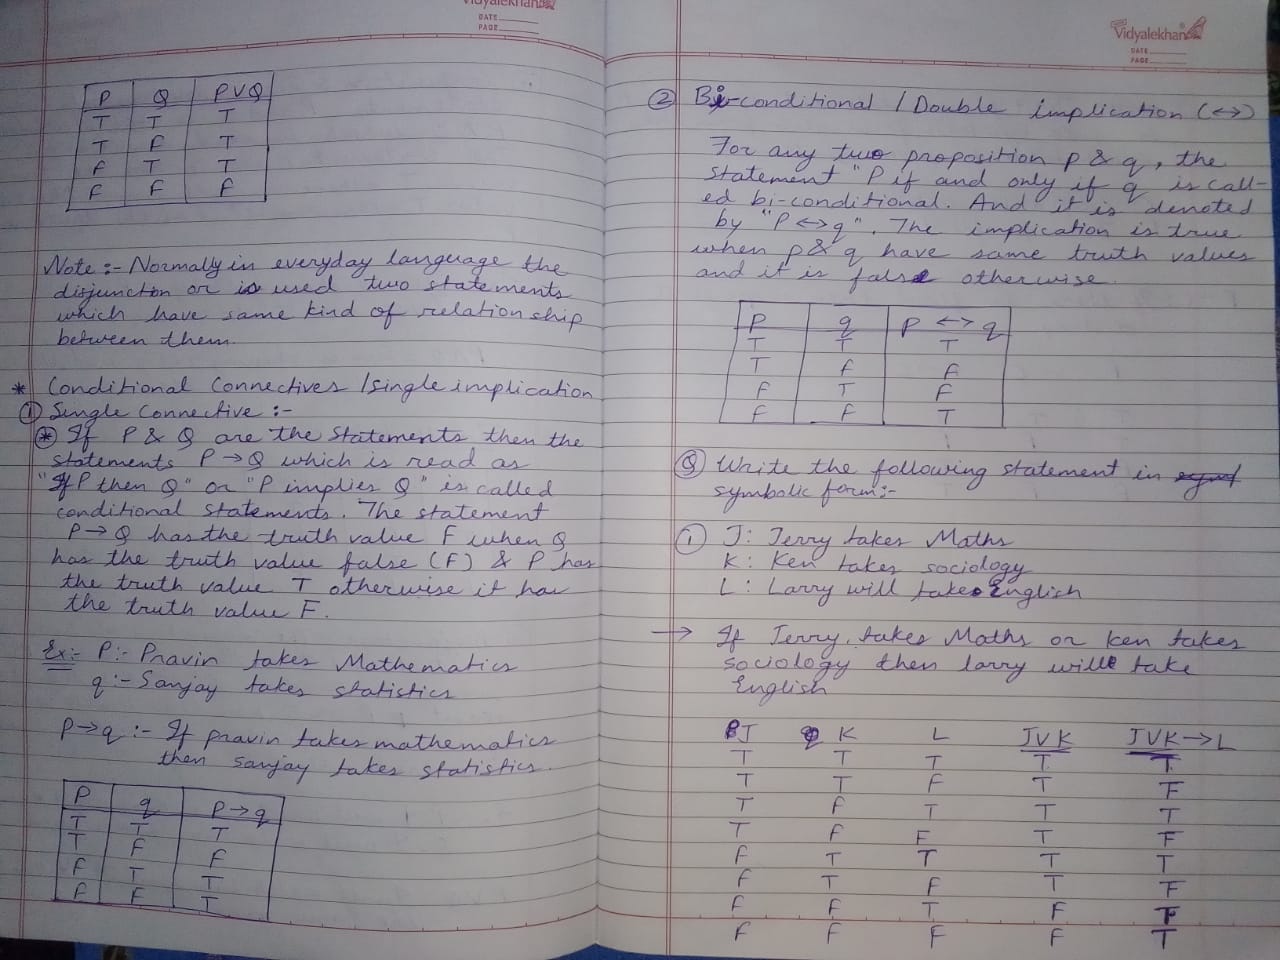 Vidyalekhan
DATE
PAGE
P Q P∨Q
T T T
T F T
F T T
F F F
Note :- Normally in everyday language the
disjunction or is used two statements
which have same kind of relationship
between them.
* Conditional Connectives / single implication
① Single Connective :-
* If P & Q are the statements then the
statements P→Q which is read as
"If P then Q" or "P implies Q" is called
conditional statements. The statement
P→Q has the truth value F when Q
has the truth value false (F) & P has
the truth value T otherwise it has
the truth value F.
Ex:- P:- Pravin takes Mathematics
q:- Sanjay takes statistics
P→q :- If pravin takes mathematics
then Sanjay takes statistics.
P q P→q
T T T
T F F
F T T
F F T
Vidyalekhan
DATE
PAGE
② Bi-conditional / Double implication (↔)
For any two proposition p & q, the
statement "P if and only if q is call-
ed bi-conditional. And it is denoted
by "P↔q". The implication is true
when p & q have same truth values
and it is false otherwise.
P q P ↔ q
T T T
T F F
F T F
F F T
Q Write the following statement in
symbolic form:-
① J: Jerry takes Maths
K: Ken takes sociology
L: Larry will take English
→ If Jerry takes Maths or ken takes
sociology then larry will take
English
J K L J∨K J∨K→L
T T T T T
T T F T F
T F T T T
T F F T F
F T T T T
F T F T F
F F T F
F F F F T